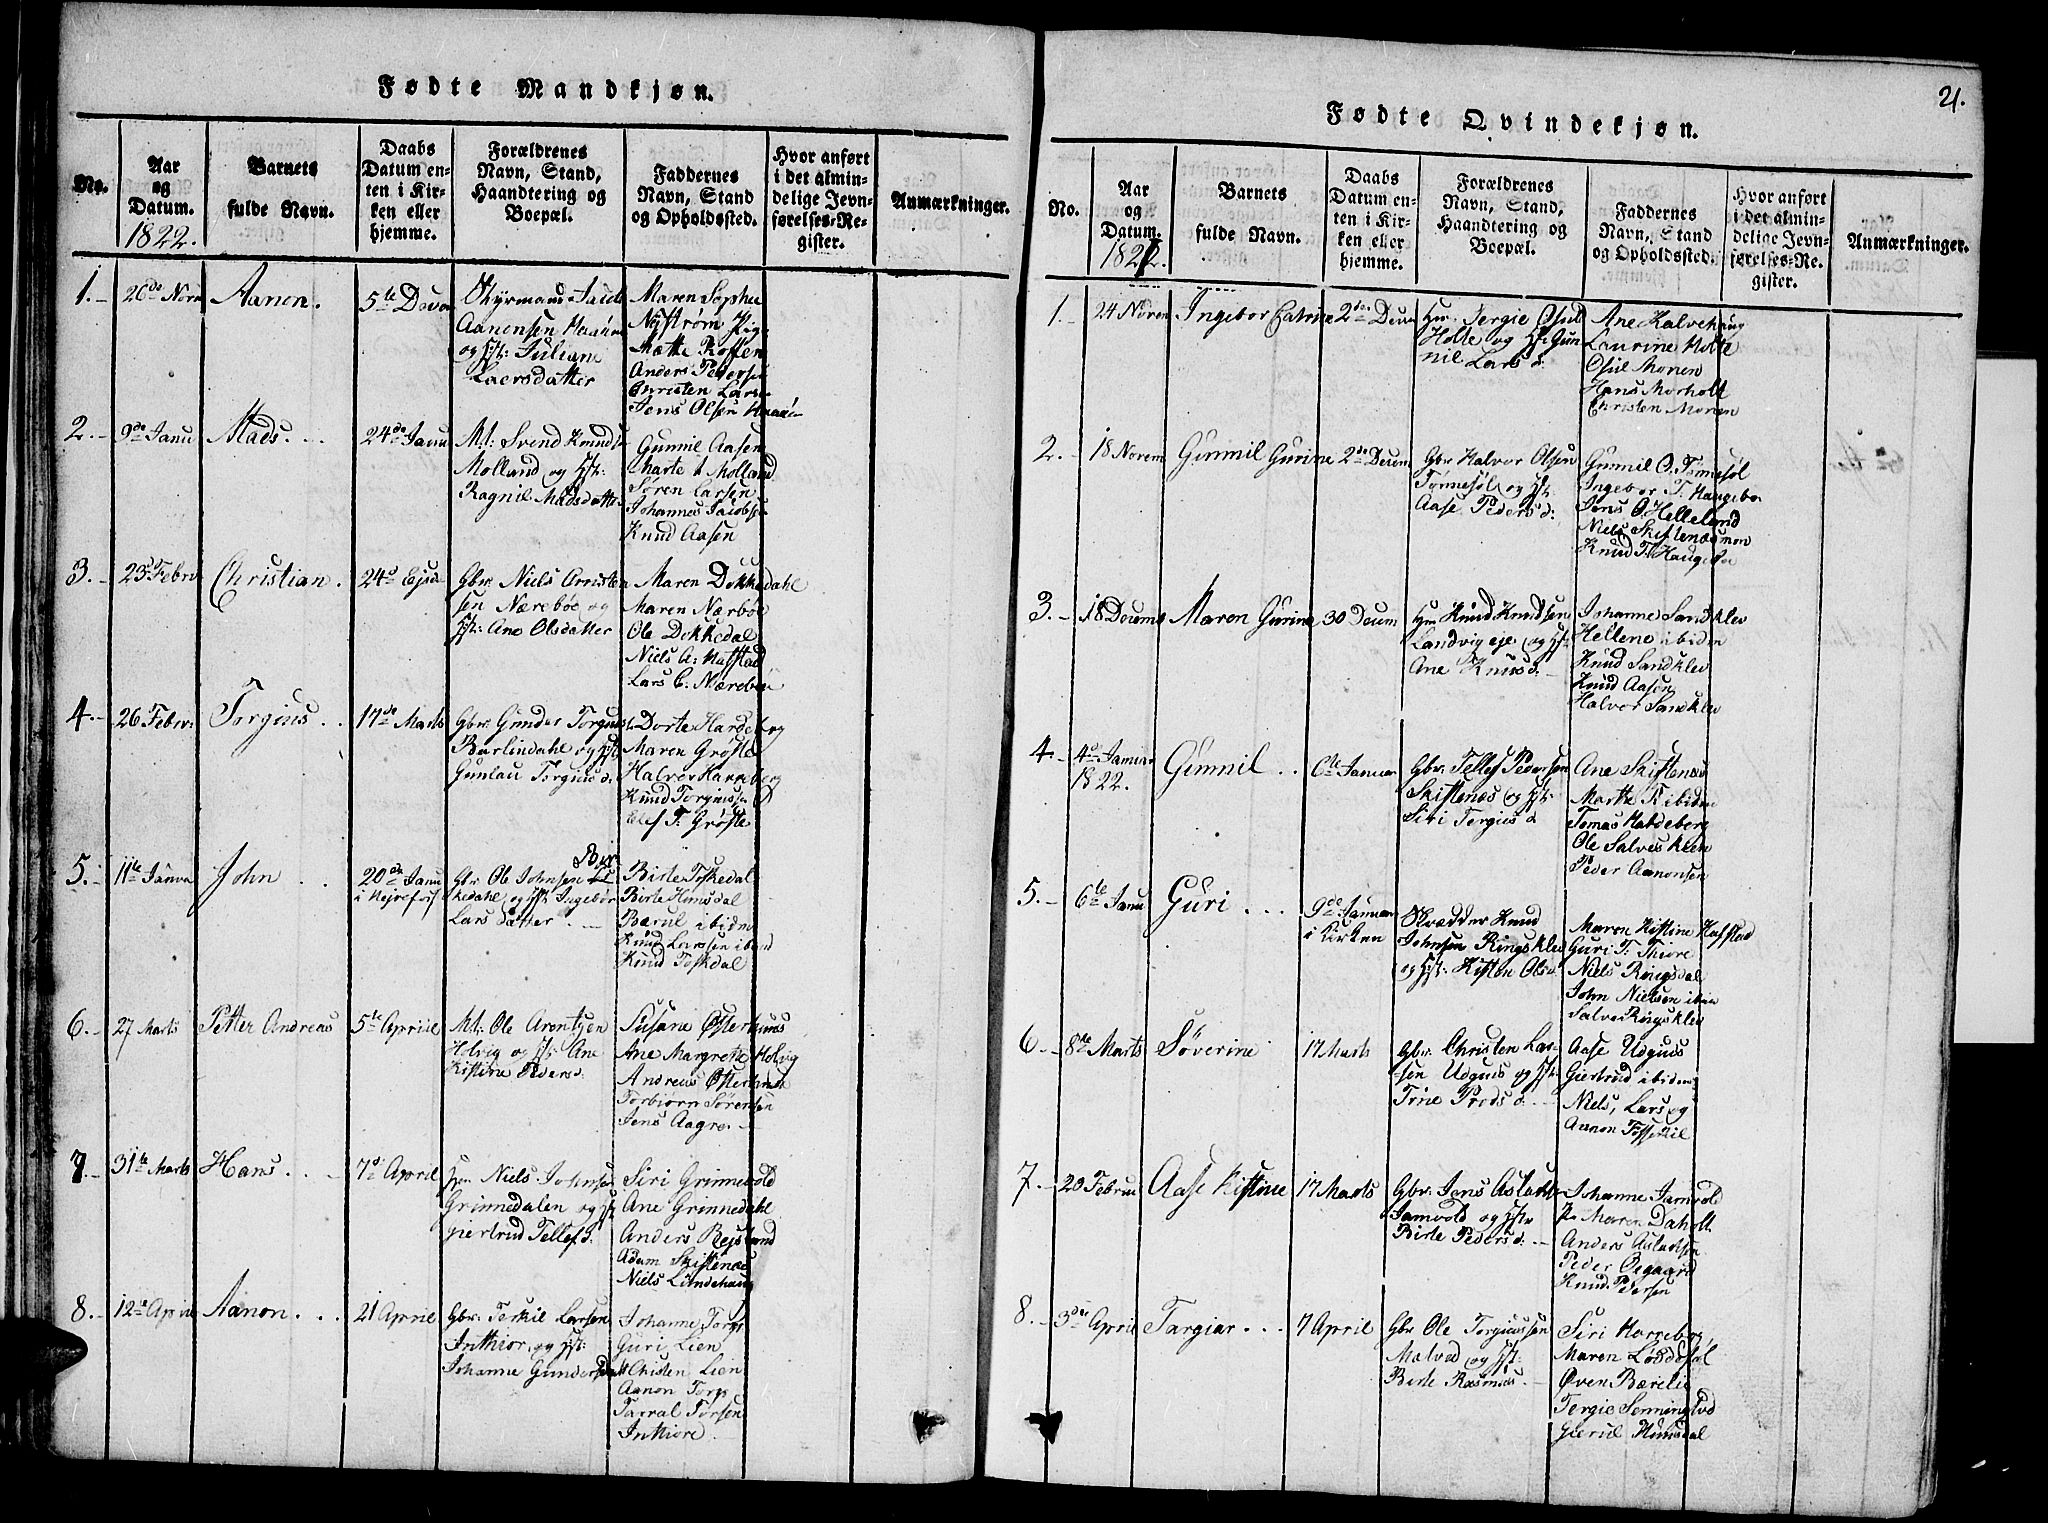 Fødte Mandkjøn.
No.
Aar
og
Datum.
1822.
Barnets
fulde Navn.
Daabs
Datum en-
ten i Kir-
ken eller
hjemme.
Forældrenes
Navn, Stand,
Haandtering og
Boepæl.
Faddernes
Navn, Stand
og Opholdssted.
Hvor anført
i det almin-
delige Jevn-
førelses-Re-
gister.
Anmærkninger.
1.
26de Novr
Aanon.
5te
Styrmand Jacob
Aanensen
og Hst: Juliane
Laersdatter
Maren Sophie
Nystrøm Pige
Mætte Roffen
Anders Peders
Christen Lars
Jens Olsen
2.
9de Janu
Mads.
24de Janu
Mt: Svend Knuds
Molland og Hst:
Ragnil Madsdatter
Gunnil Aasen
Marte Molland
Søren Larsen
Johannes Jacobsen
Knud Aasen
3.
23 Febru
Christian.
24d Ejusd
Gbr: Niels Christen
sen Nærebøe og
Hst: Ane Olsdatter
Maren Dokkedahl
Maren Nærbøe
Ole Dokkedal
Niels A: Hafstad
Lars C: Nærebøe
4.
26 Febr:
Torgius
17de Marts
Gbr: Gunder Torgius
Barlindahl og Hst
Gunlau Torgius d.
Dorte Hardeberg
Maren Grøsle
Halvor Harreberg
Knud Torgiussen
Olef T: Grøsle
5.
11te Janua
John
20de Janu
i Hejrefos
Gbr Ole Johnsen Bir
kedahl og Hst Ingebor
Lars datter.
Birte Toskedal
Birte Hunsdal
Bærul ibidm
Knud Larssen ibid
Knud Toskdal
6.
27 Marts
Petter Andreas
5te Apriil
Mt: Ole Arentzen
Holvig og Hst: Ane
Kistine Peders d:
Susane Østerhuus
Ane Margrete Holvig
Andreas Østerhuus
Torbiorn Sørensen
Jens Aagre
7.
31te Marts
Hans.
7d April
Niels Johnsen
Grinnedalen og Hst
Giertrud Tellefs d.
Siri Grinnevold
Ane Grinnedahl
Anders Rejsland
Adam Skiftenæs
Niels Lundehaug
8.
12te April
Aanon.
21 April
Gbr: Terkil Larsen
Inthior og Hst:
Johanne Gundersdatt
Johanne Torp
Guri Lien
Christen Lien
Aanon Torp
Tarral Torsen
Inthiore.
21.
Fødte Qvindekjøn.
No.
Aar
og
Datum.
1822.
Barnets
fulde Navn.
Daabs
Datum en-
ten i Kir-
ken eller
hjemme.
Forældrenes
Navn, Stand,
Haandtering og
Boepæl.
Faddernes
Navn, Stand
og Opholdssted.
Hvor anført
i det almin-
delige Jevn-
førelses-Re-
gister.
Anmærkninger.
1.
24 Novem
Ingebor Catrine
2den Decem
Hm: Tergie Osul
Holte og Hst: Gun
nil Lars d:
Ane Kalvehaug
Laurine Holte
Osul Monen
Hans Morholt
Christen Moren
2.
18 Novem
Gunnil Gurine
2de Decem
Gbr Halvor Olsen
Tønnesøl og Hst.
Aase Peders d:
Gunnil O. Tønnesøl
Ingebor T. Haugebo
Jens O. Helleland
Niels Skiftenæsmon
Knud T. Haugeboe
3.
18 Decemb
Maren Gurine
30 Decem
Hm Knud Knudsen
Landvig eje og Hst
Ane Knuds d.
Johanne Sandklev
Hellene ibidm
Knud Sandklev
Knud Aasen
Halvor Sandklev
4.
4de Januar
1822.
Gunnil
6te Januar
Gbr: Tellef Pedersen
Skiftenæs og Hst:
Siri Torgius d.
Ane Skiftenæs
Marthe K ibidm
Tomas Hardeberg
Ole Salves Klev
Peder Aanonsen
5.
6te Janu
Guri
9de Januar
i Kirken
Skrædder Knud
Johnsen Ringsklev
og Hst: Kisten Olsd:
Maren Kistine Hafstad
Guri T: Thiore
Niels Ringsdal
John Nielsen ibid
Salve Ringsklev
6.
8de Marts
Søverine
17 Marts
Gbr. Christen Lar-
sen Udguus og Hst.
Trine Prods d.
Aase Udguus
Giertrud ibidm
Niels, Lars og
Aanon Fosseliil
7.
20 Februa
Aase Kistine
17 Marts
Gbr: Jens Aslaks
Jamvold og Hst
Birte Peders d:
Johanne Jamvold
Maren Daholt
Anders Aslachsen
Peder Øegaard
Knud Pedersen
8.
3die April
Targiar
7 April
Gbr Ole Torgiussen
Malved og Hst:
Birte Rasmus
Siri Harreberg,
Maren Løddesøl
Øven Bærelie
Tergie Senninglød
Gierul Hunsdal